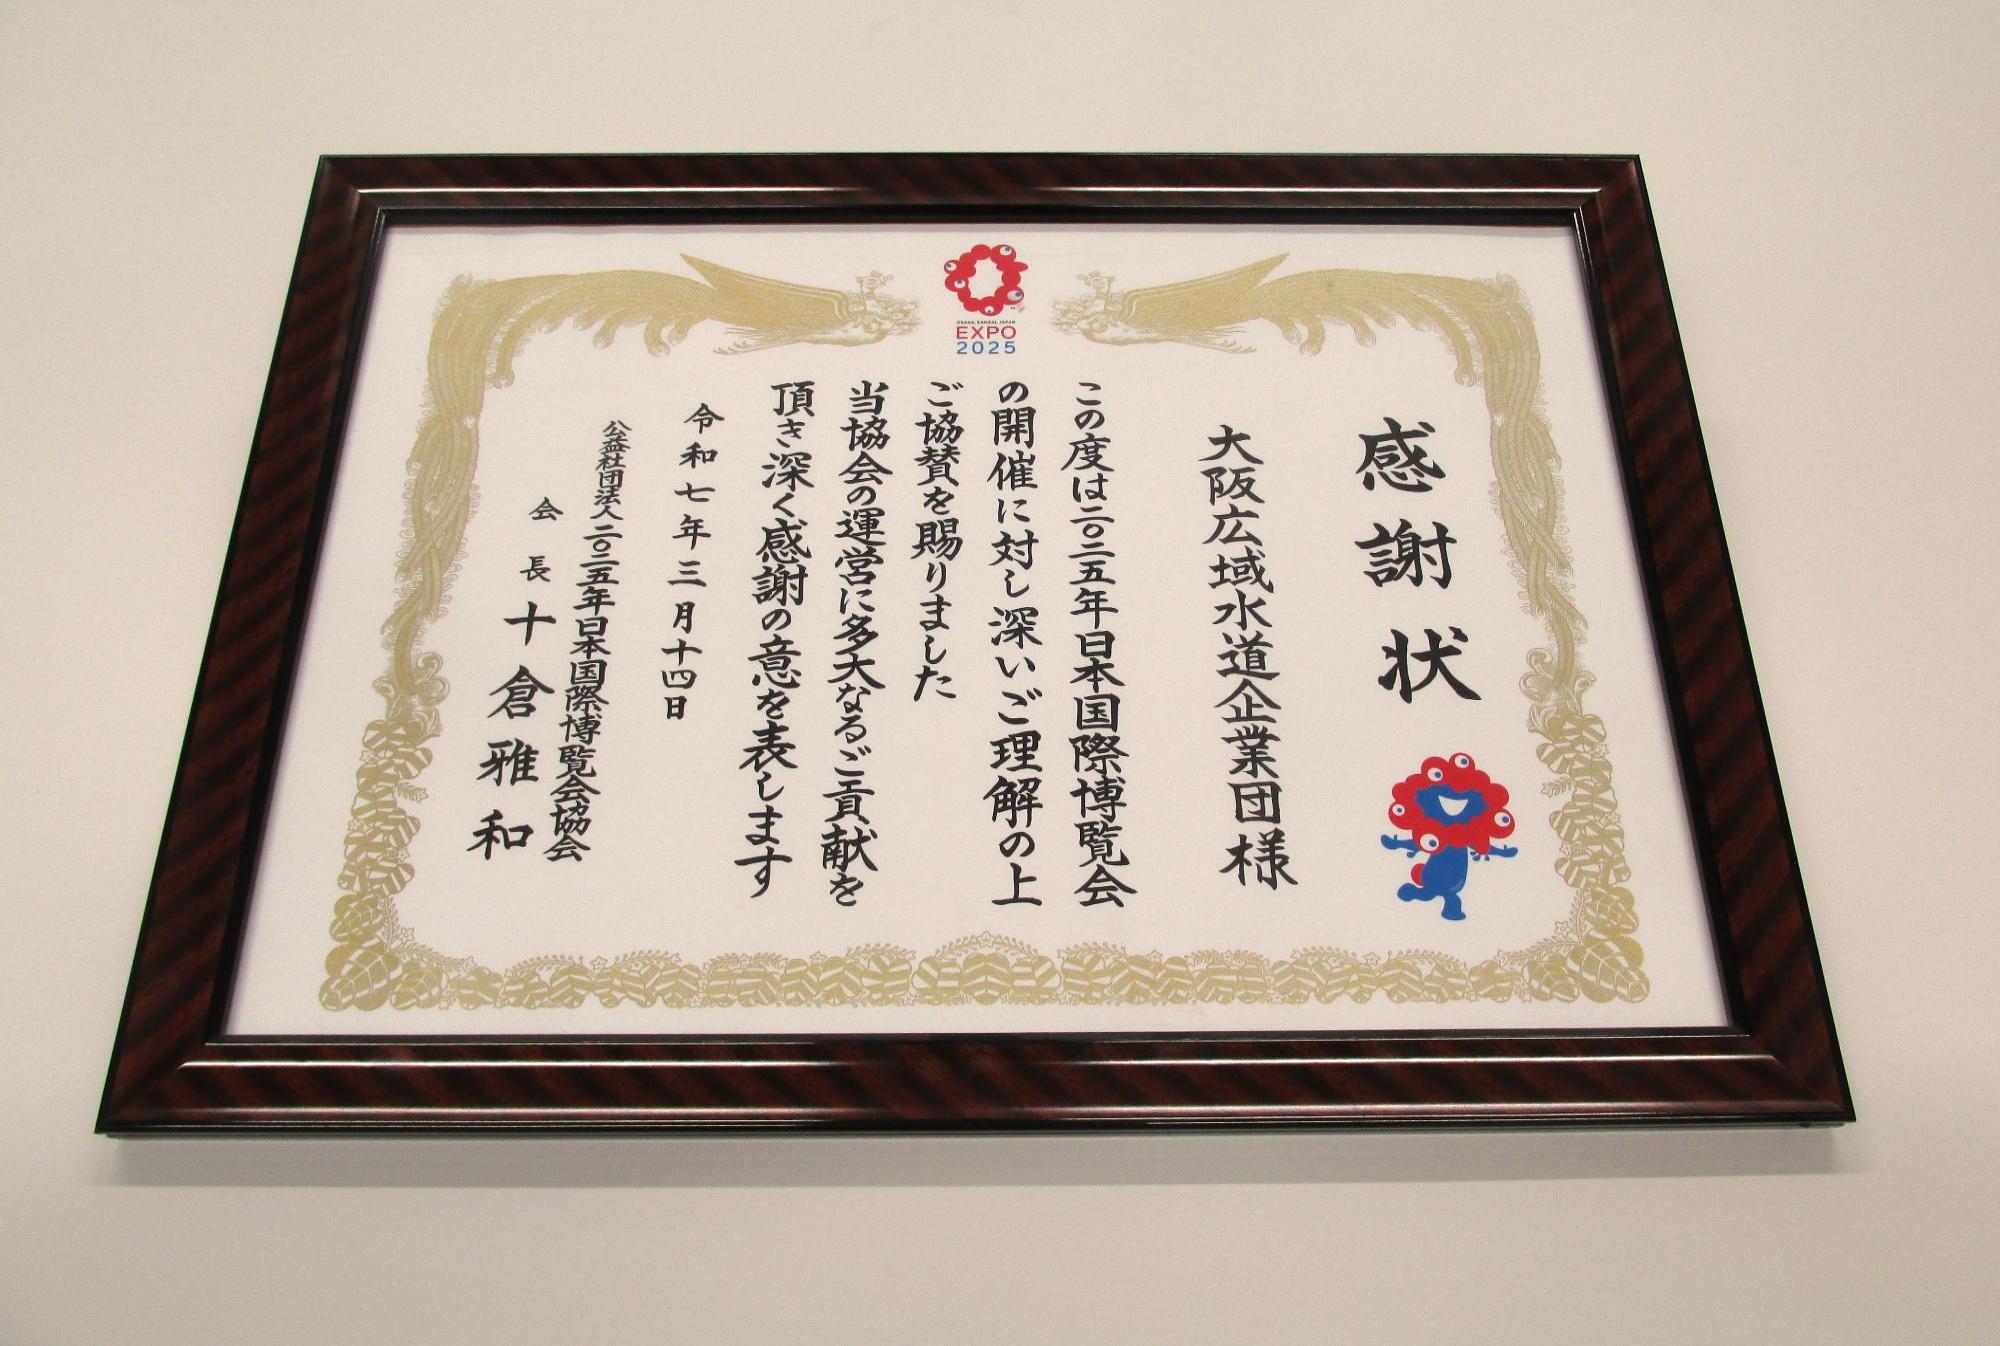 OSAKA, KANSAI, JAPAN
EXPO
2025
感謝状
大阪広域水道企業団様
この度は二〇二五年日本国際博覧会
の開催に対し深いご理解の上
ご協賛を賜りました
当協会の運営に多大なるご貢献を
頂き深く感謝の意を表します
令和七年三月十四日
公益社団法人二〇二五年日本国際博覧会協会
会長十倉雅和